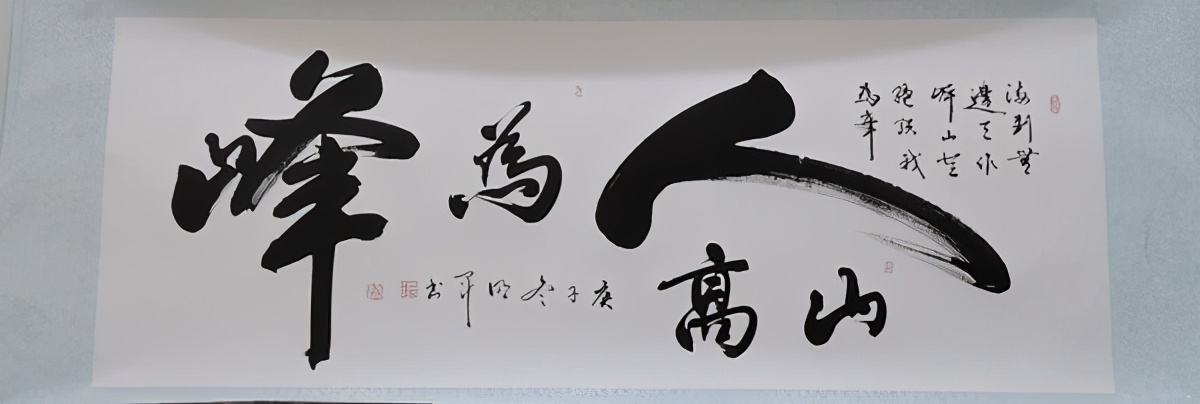 海到無
邊天作
岸山登
絕頂我
為峰
山高人為峰
庚子冬明軍书